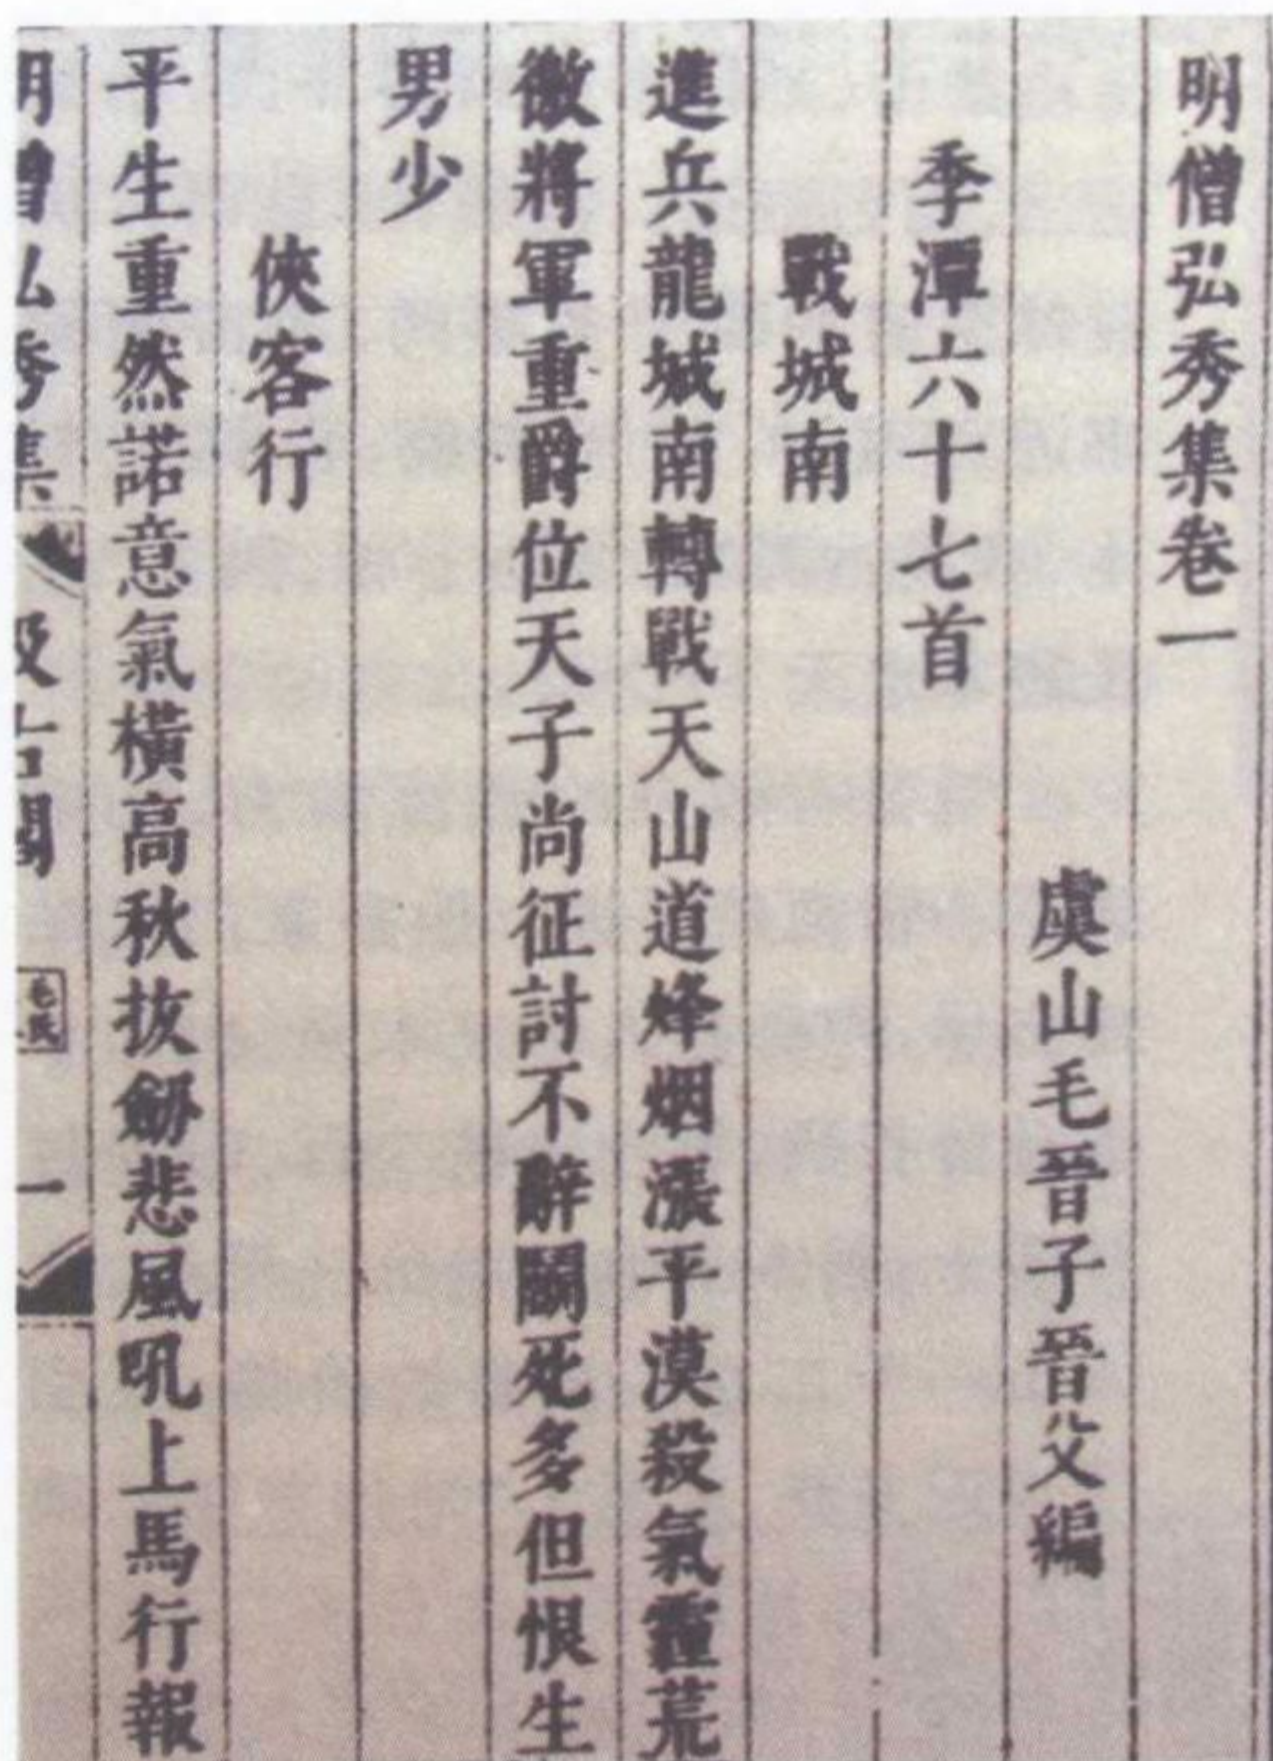 明僧弘秀集卷一
虞山毛晉子晉父編
季潭六十七首
戰城南
進兵龍城南轉戰天山道烽烟漲平漠殺氣霾荒
徼將軍重爵位天子尚征討不辭鬭死多但恨生
男少
俠客行
平生重然諾意氣橫高秋抜劒悲風吼上馬行報
明僧弘秀集 汲古閣 毛氏 一